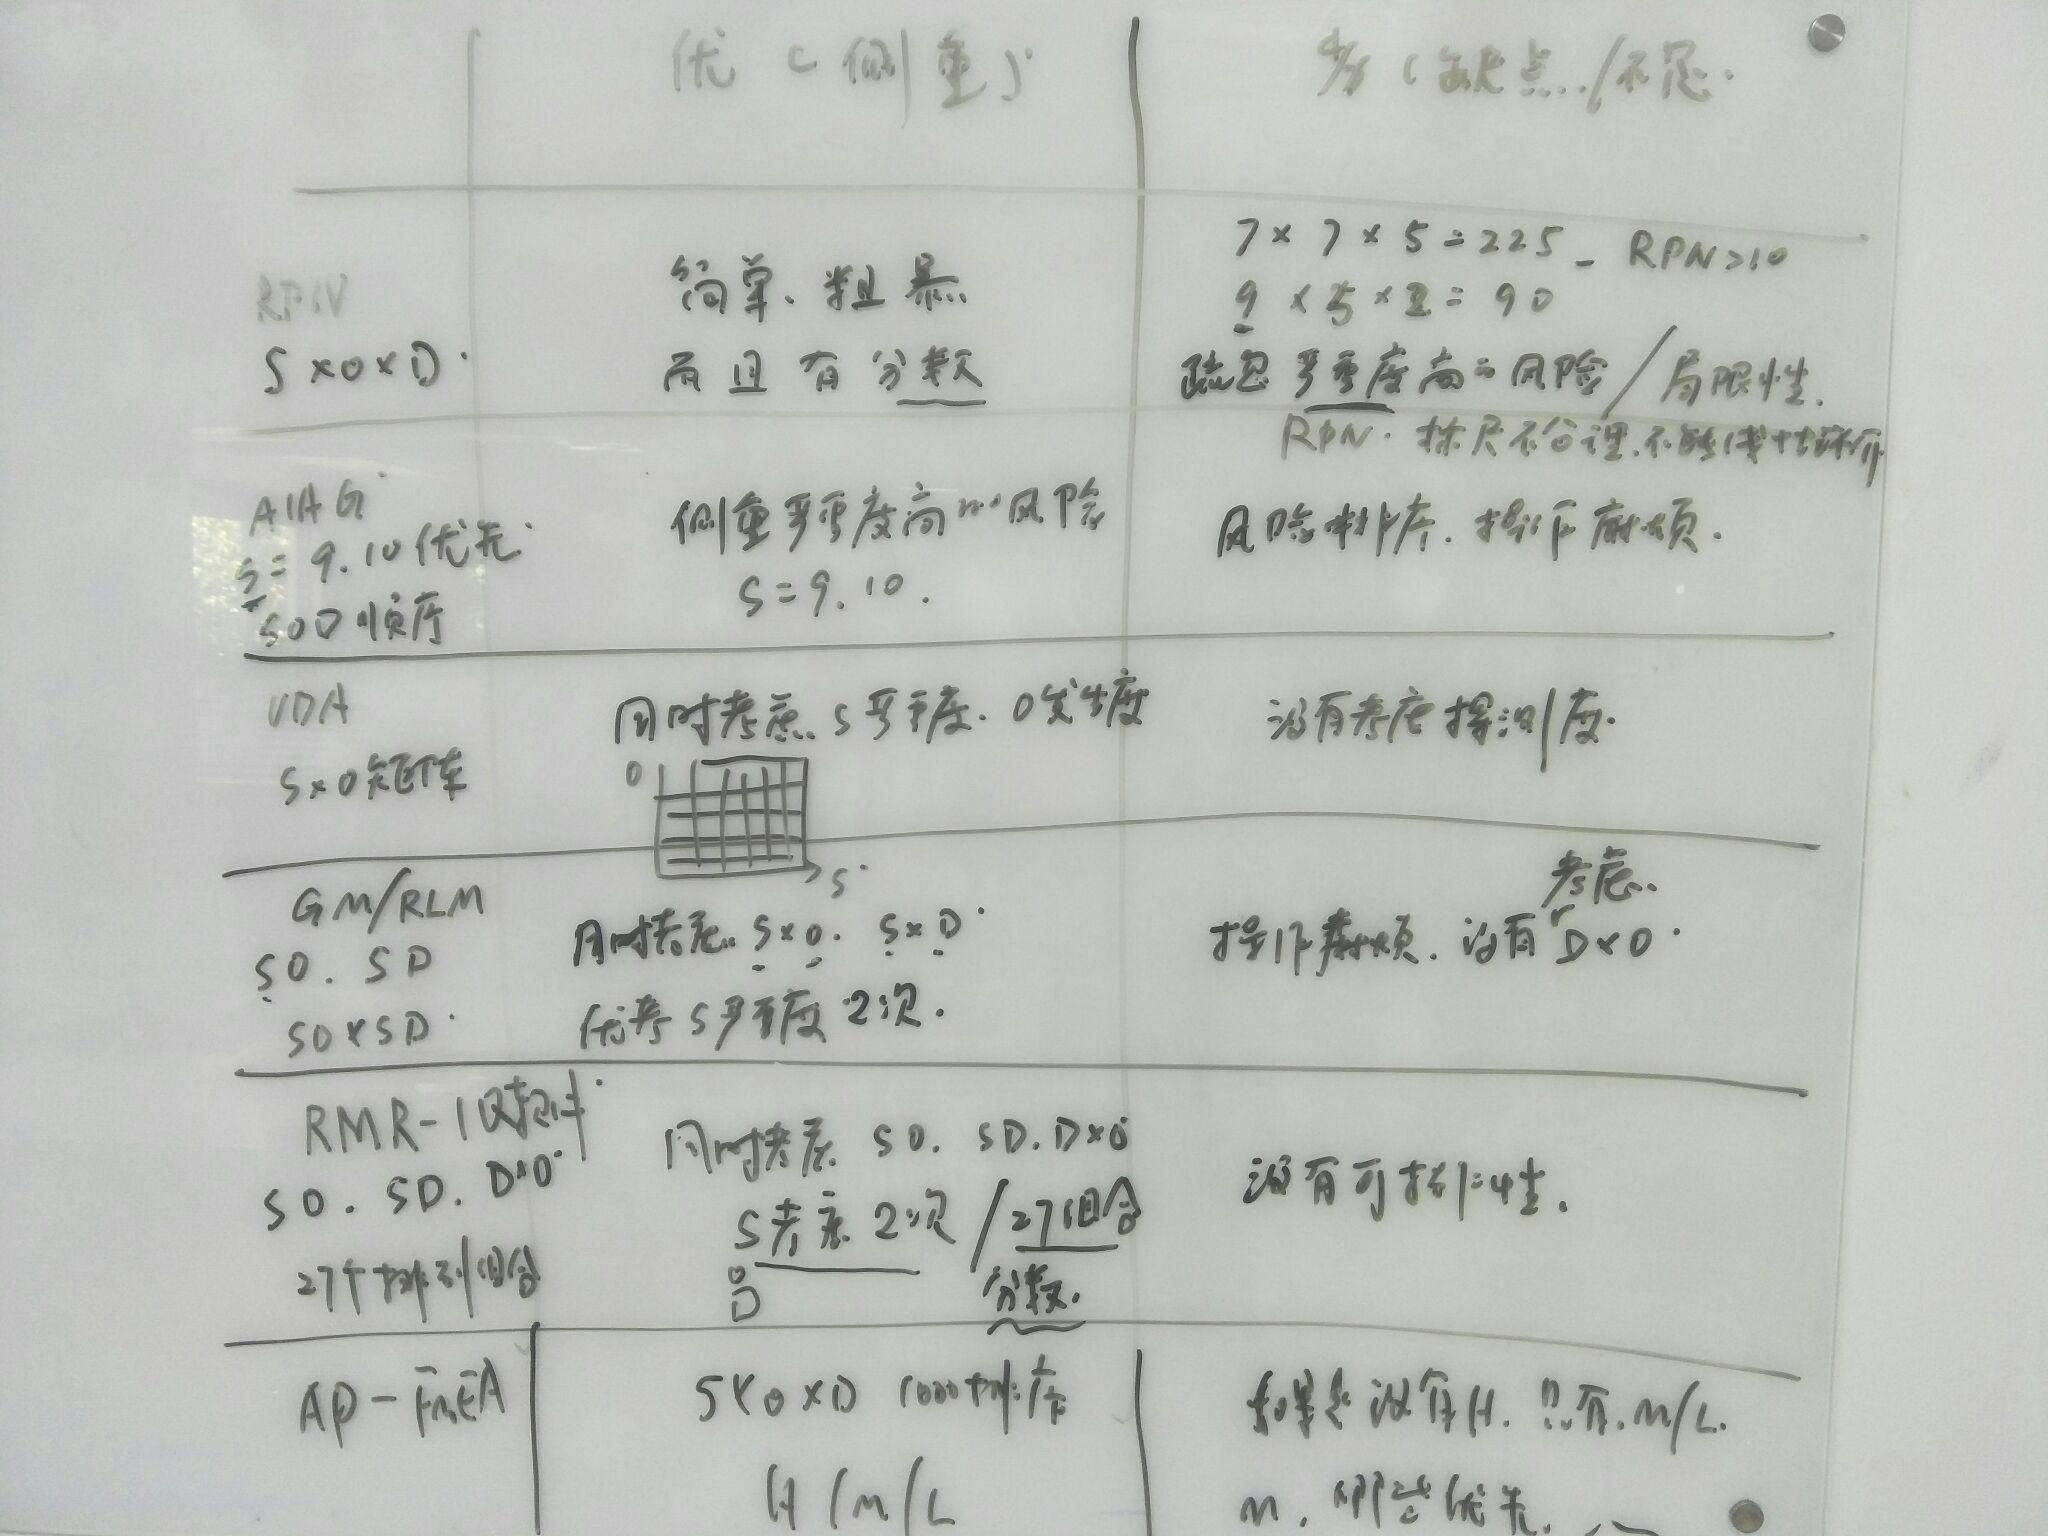 优(侧重)
劣(缺点/不足.
RPN
S×O×D.
简单、粗暴
而且有分数
7×7×5=225 - RPN>10
9×5×2=90
疏忽严重度高的风险/局限性.
RPN. 标尺不合理.不能
AIAG
S=9.10优先
SOD顺序
侧重严重度高的风险
S=9.10.
风险排序.操作麻烦.
VDA
S×O矩阵
同时考虑S严重度.O发生度
O
S
没有考虑探测度.
GM/RLM
SO. SD
SO×SD.
同时考虑S×O. S×D.
优考S严重度2次.
考虑
操作麻烦.没有D×O.
RMR-1
SO. SD. D×O
27个排列组合
同时考虑SO. SD. D×O
S考虑2次/27组合
O
D
分数.
没有可操作性.
AP-FMEA
S×O×D 1000排序
H/M/L
如果是没有H.只有.M/L.
M.哪些优先.